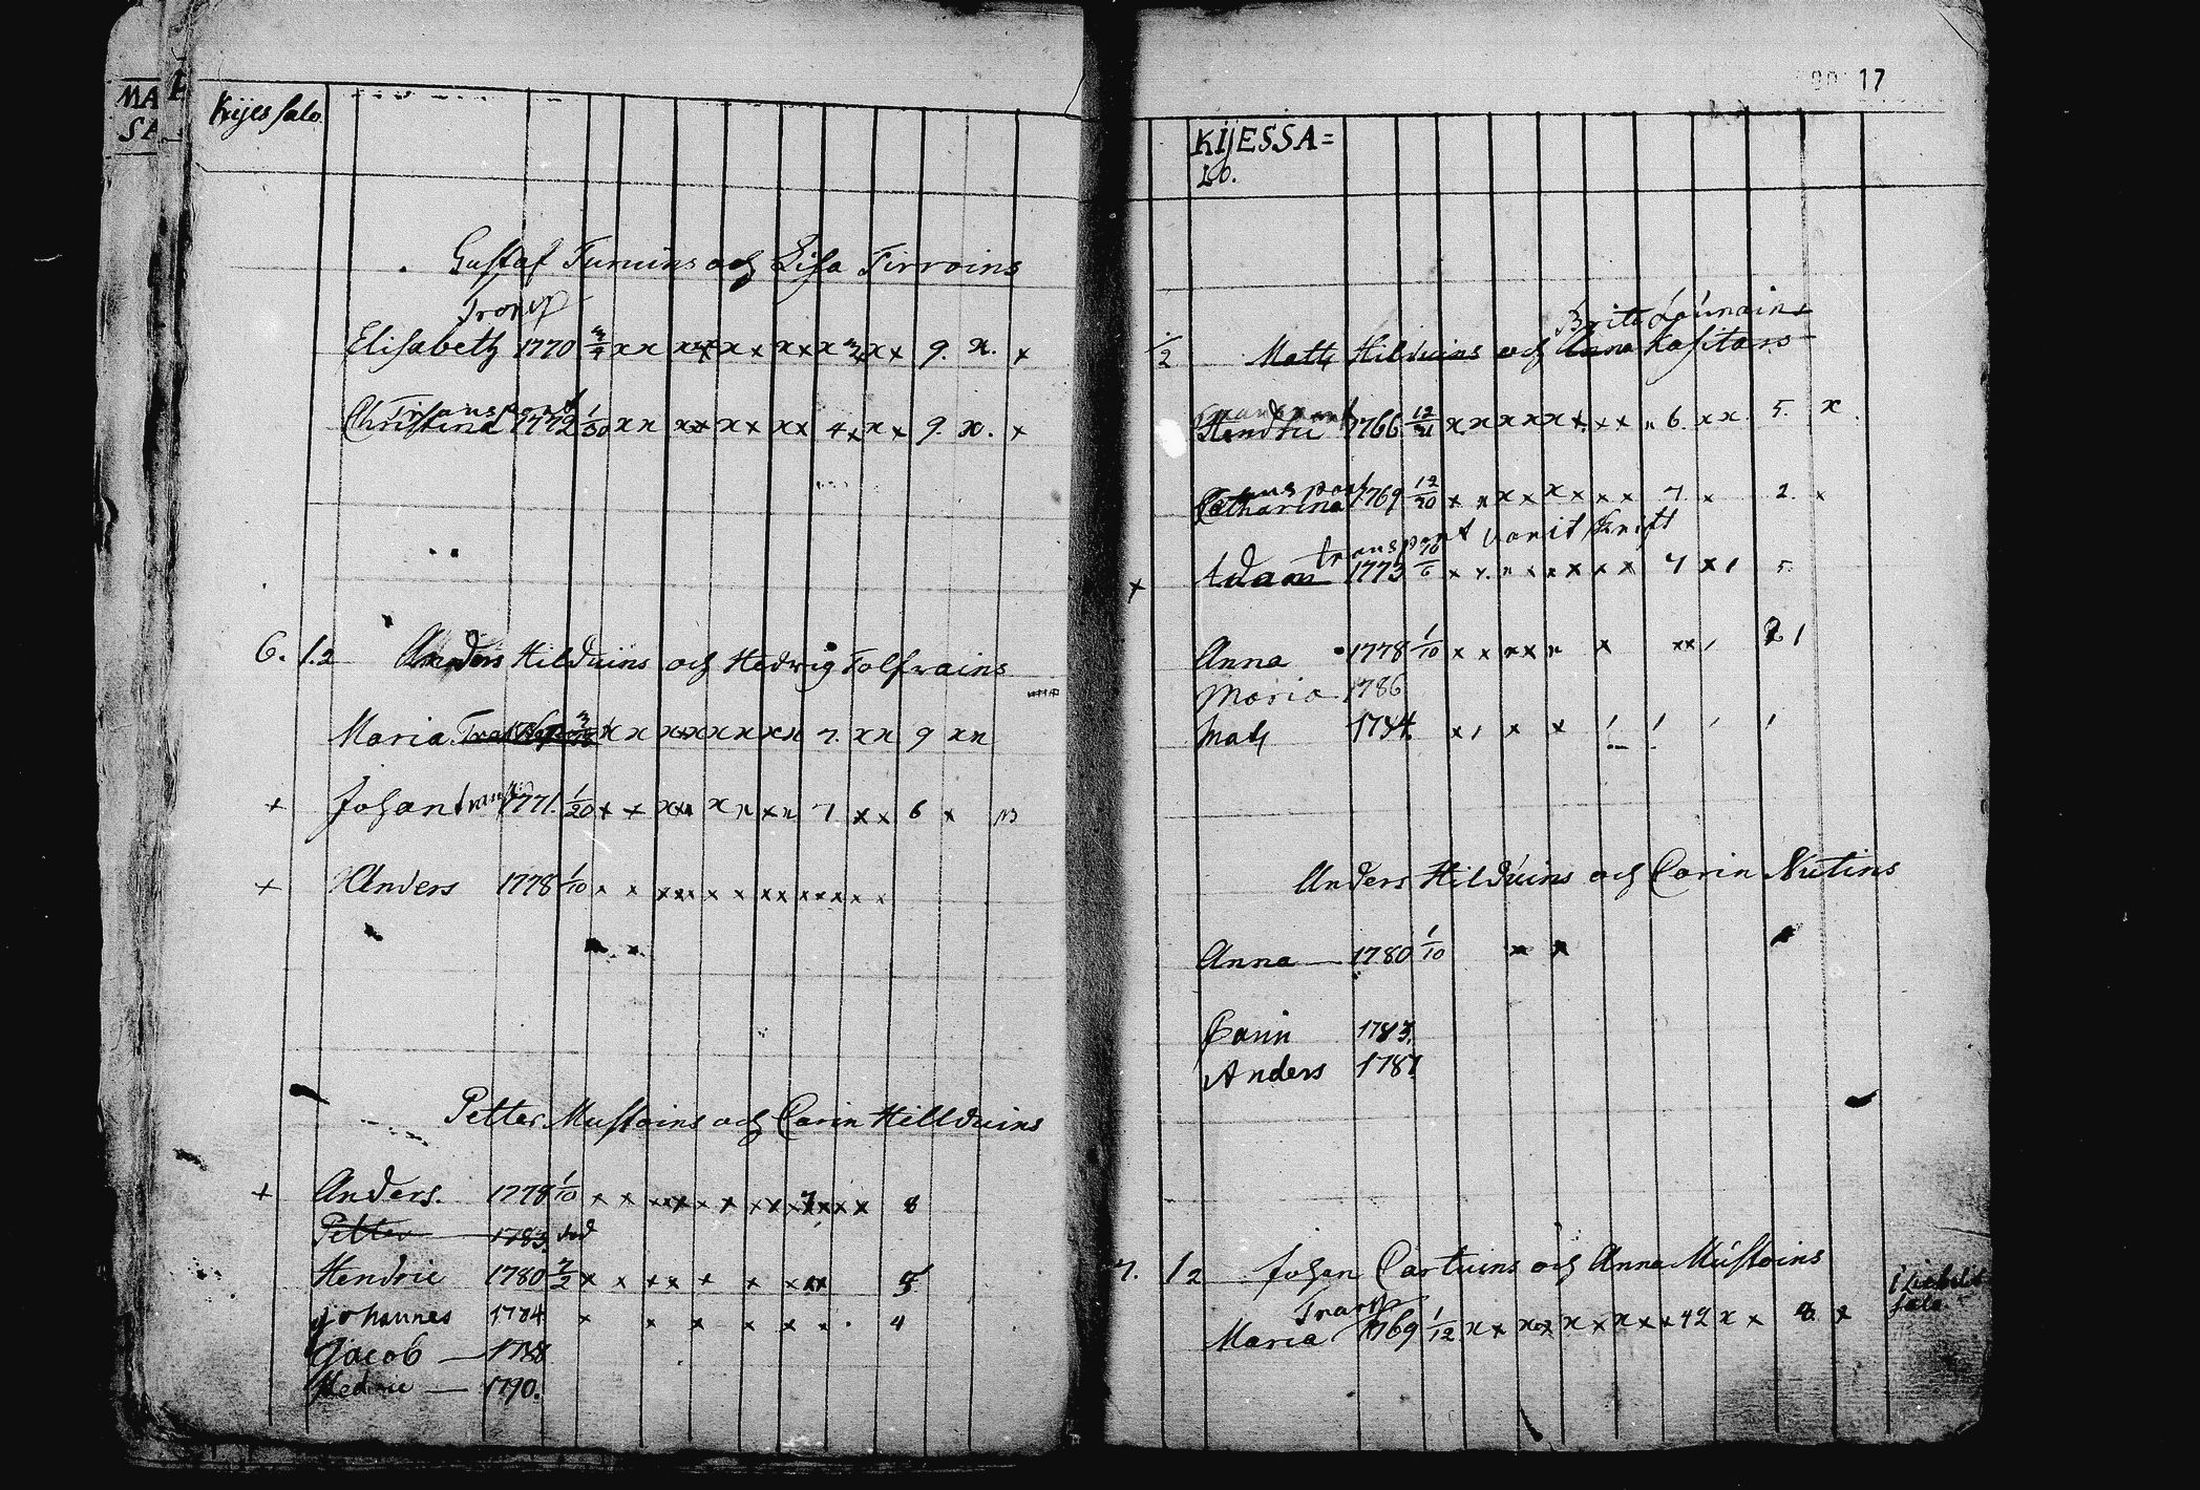 MA
SA
Kijessalo.
Gustaf Turuins och Lisa Tirroins
Transp
Elisabeth 1770 3/4 x x x x x x x x x x x 9. x. x
Transport
Christina 1772 1/30 x x x x x x x x 4 x x x 9. x. x
6. 1.2 Anders Hilduins och Hedwig Tolfrains
Maria x x x x x x x x x 7. x x 9 x x
+ Johan transp 1771. 1/20 x x x x x x x x 7 x x 6 x
+ Anders 1778 1/10 x x x x x x x x x x x x x x
Petter Mustoins och Carin Hillduins
+ Anders. 1778 1/10 x x x x x x x x x x x x 8
Petter 1783. död
Hendric 1780 2/2 x x x x x x x x x 5
Johannes 1784 x x x x x x . 4
Jacob — 1788
Hedvic — 1790.
17
KIJESSA=
LO.
Brita Launains
1/2 Matts Hilduins och Anna Kasitars
Transport
Hendric 1766 12/21 x x x x x x x x 6. x x 5. x.
Transport
Catharina 1769 12/20 x x x x x x x x 7 x 2. x
transport
x Adam 1773 10/6 x x x x x x x x 7 x 1 5
Anna 1778 1/10 x x x x x x x x 1 2 1
Maria 1786
Mats 1784. x 1 x x 1 1 1 1
Anders Hilduins och Carin Nutins
Anna — 1780 1/10 x x
Carin 1783.
Anders 1787
7. 1 2 Johan Cartuins och Anna Mustoins
Transp
Maria 1769 1/12 x x x x x x x x x 42 x x 8. x